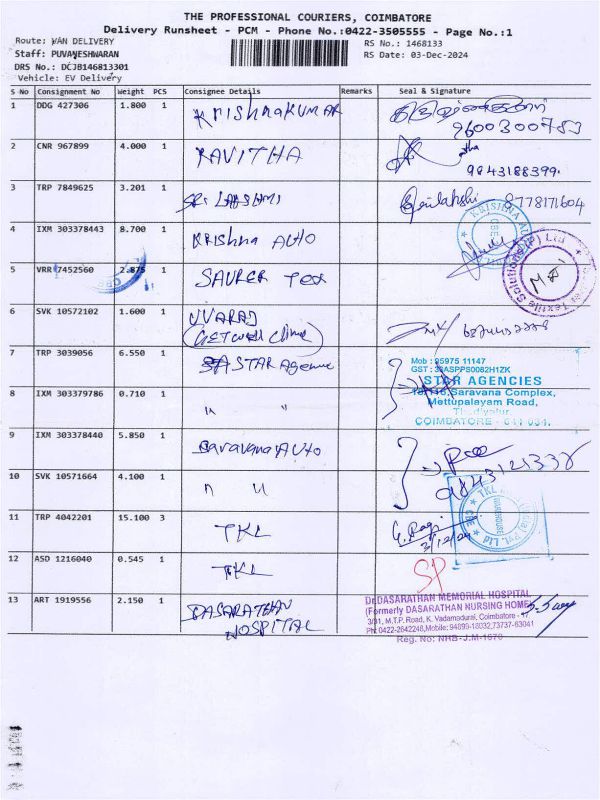 THE PROFESSIONAL COURIERS, COIMBATORE
Delivery Runsheet - PCM - Phone No.:0422-3505555 - Page No.:1
Route: VAN DELIVERY
RS No.: 1468133
Staff: PUVANESHWARAN
RS Date: 03-Dec-2024
DRS No.: DCJB146813301
Vehicle: EV Delivery
S No Consignment No Weight PCS Consignee Details Remarks Seal & Signature
1 DDG 427306 1.800 1 KRISHNAKUMAR
9600300783
2 CNR 967899 4.000 1 KAVITHA
9843188399
3 TRP 7849625 3.201 1 SRI LAKSHMI 8778171604
4 IXM 303378443 8.700 1 KRISHNA AUTO
KRISHNA
5 VRR 7452560 2.875 1 SAURER Tex
Textile Solutions (P) Ltd
6 SVK 10572102 1.600 1 UVARAJ
(GETWELL Clinic)
7 TRP 3039056 6.550 1 STAR Agencie
Mob : 95975 11147
GST : 33ASPPS0082H1ZK
STAR AGENCIES
Saravana Complex,
Mettupalayam Road,
Thudiyalur
COIMBATORE - 641 034.
8 IXM 303379786 0.710 1 " "
9 IXM 303378440 5.850 1 Saravana AUTO
10 SVK 10571664 4.100 1 " "
11 TRP 4042201 15.100 3 TKL
3/12/24
TKL Pvt. Ltd
WAREHOUSE
CBE
12 ASD 1216040 0.545 1 TKL
SP
13 ART 1919556 2.150 1 DASARATHAN
HOSPITAL
Dr.DASARATHAN MEMORIAL HOSPITAL
(Formerly DASARATHAN NURSING HOME)
3/31, M.T.P. Road, K. Vadamadurai, Coimbatore - 17
Ph: 0422-2642248, Mobile: 94899-18032,73737-63041
Reg. No: NHB-J.M-1670